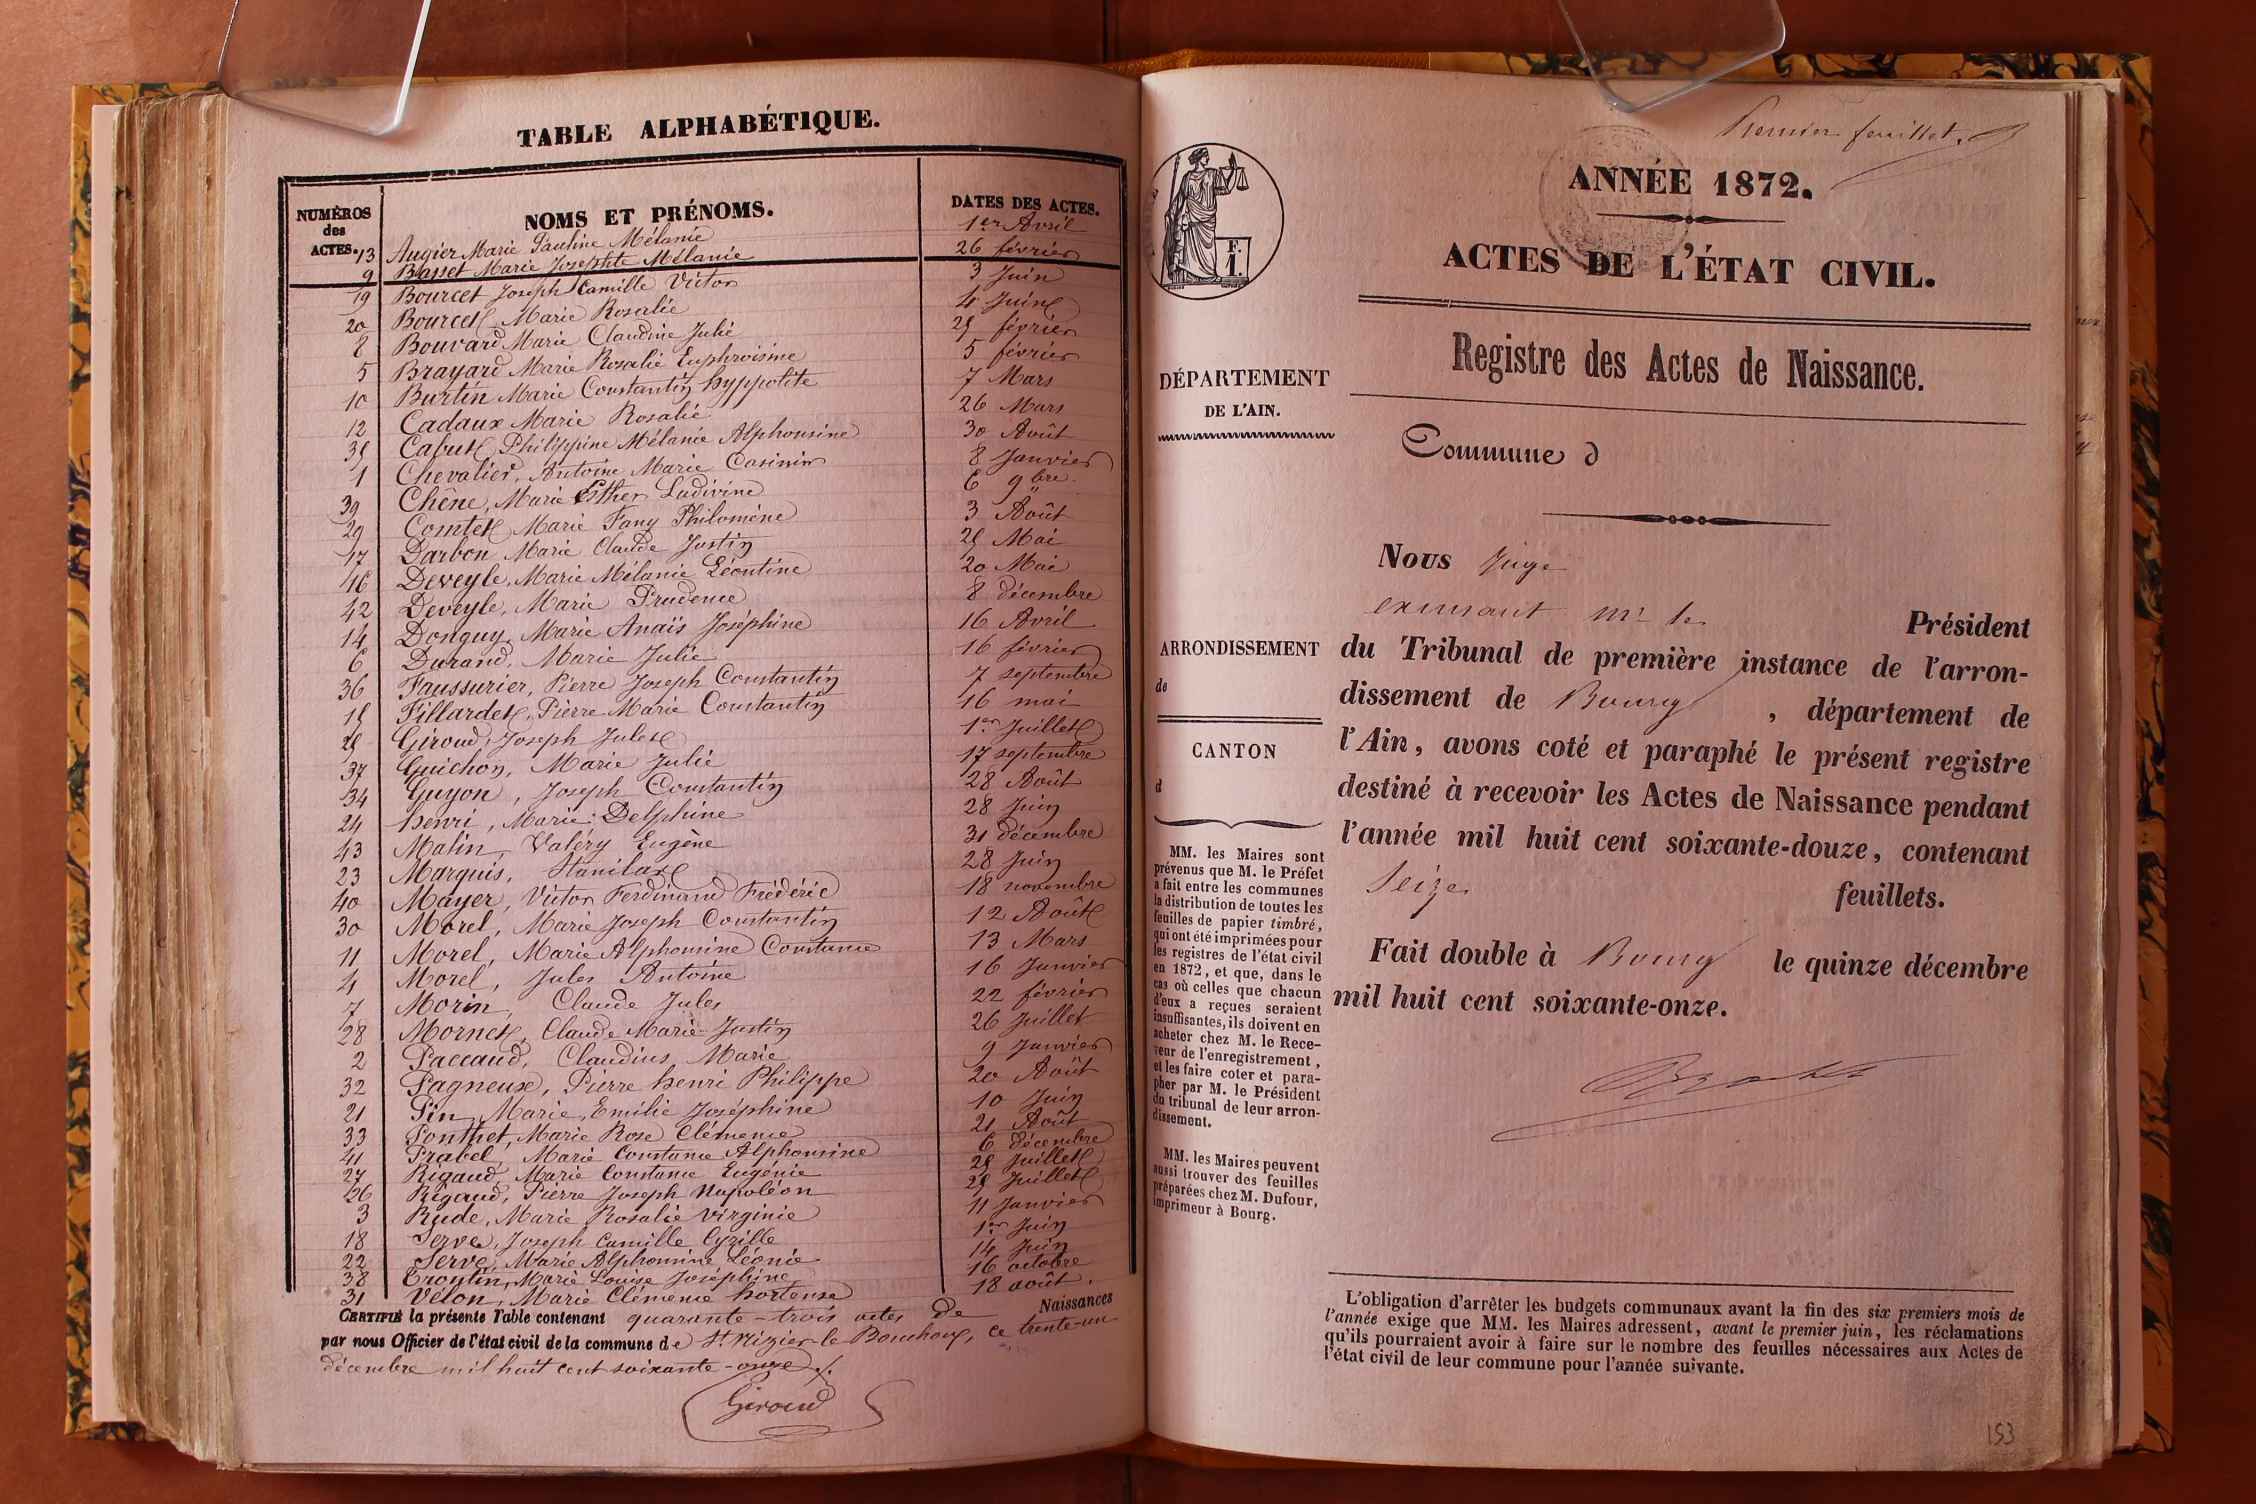 TABLE ALPHABÉTIQUE.
NUMÉROS des ACTES. NOMS ET PRÉNOMS. DATES DES ACTES.
13 Augier Marie Pauline Mélanie 1er Avril
9 Basset Marie Josephte Mélanie 26 février
19 Bourcet Joseph Camille Victor 3 Juin
20 Bourcet Marie Rosalie 4 Juin
8 Bouvard Marie Claudine Julie 25 février
5 Brayard Marie Rosalie Euphroisine 5 février
10 Burtin Marie Constantin hyppolite 7 Mars
12 Cadaux Marie Rosalie 26 Mars
35 Cabut Philippine Mélanie Alphonsine 30 Août
1 Chevalier, Antoine Marie Casimir 8 Janvier
39 Chêne, Marie Esther Ludivine 6 9bre
29 Comtet Marie Fany Philomène 3 Août
17 Darbon Marie Claude Justin 25 Mai
16 Deveyle, Marie Mélanie Léontine 20 Mai
42 Deveyle, Marie Prudence 8 décembre
14 Donguy Marie Anaïs Joséphine 16 Avril
6 Durand, Marie Julie 16 février
36 Faussurier, Pierre Joseph Constantin 7 septembre
15 Fillardet, Pierre Marie Constantin 16 mai
25 Giroud, Joseph Jules 1er Juillet
37 Guichon, Marie Julie 17 septembre
34 Guyon, Joseph Constantin 28 Août
24 henri, Marie Delphine 28 Juin
43 Malin, Valéry Eugène 31 décembre
23 Marquis, Stanilas 28 Juin
40 Mayer, Victor Ferdinand Frédéric 18 novembre
30 Morel, Marie Joseph Constantin 12 Août
11 Morel, Marie Alphonsine Constance 13 Mars
4 Morel, Jules Antoine 16 Janvier
7 Morin, Claude Jules 22 février
28 Mornet, Claude Marie Justin 26 Juillet
2 Paccaud, Claudius Marie 9 Janvier
32 Pagneux, Pierre henri Philippe 20 Août
21 Pin, Marie Emilie Joséphine 10 Juin
33 Ponthet, Marie Rose Clémence 21 Août
41 Prabel, Marie Constance Alphonsine 6 décembre
27 Rigaud, Marie Constance Eugénie 25 Juillet
26 Rigaud, Pierre Joseph Napoléon 25 Juillet
3 Rude, Marie Rosalie Virginie 11 Janvier
18 Serve, Joseph Camille Cyrille 1er Juin
22 Serve, Marie Alphonsine Léonie 14 Juin
38 Troutin, Marie Louise Joséphine 16 octobre
31 Vélon, Marie Clémence hortense 18 août.
CERTIFIÉ la présente Table contenant quarante-trois actes de Naissances
par nous Officier de l'état civil de la commune de St Nizier-le-Bouchoux, ce trente-un
décembre mil huit cent soixante-onze.
Giroud
Premier feuillet.
F. 1.
ANNÉE 1872.
ACTES DE L'ÉTAT CIVIL.
Registre des Actes de Naissance.
DÉPARTEMENT
DE L'AIN.
Commune d
ARRONDISSEMENT
de
CANTON
d
MM. les Maires sont
prévenus que M. le Préfet
a fait entre les communes
la distribution de toutes les
feuilles de papier timbré,
qui ont été imprimées pour
les registres de l'état civil
en 1872, et que, dans le
cas où celles que chacun
d'eux a reçues seraient
insuffisantes, ils doivent en
acheter chez M. le Rece-
veur de l'enregistrement,
et les faire coter et para-
pher par M. le Président
du tribunal de leur arron-
dissement.
MM. les Maires peuvent
aussi trouver des feuilles
préparées chez M. Dufour,
imprimeur à Bourg.
Nous Juge
Mr le Président
du Tribunal de première instance de l'arron-
dissement de Bourg, département de
l'Ain, avons coté et paraphé le présent registre
destiné à recevoir les Actes de Naissance pendant
l'année mil huit cent soixante-douze, contenant
Seize feuillets.
Fait double à Bourg le quinze décembre
mil huit cent soixante-onze.
L'obligation d'arrêter les budgets communaux avant la fin des six premiers mois de
l'année exige que MM. les Maires adressent, avant le premier juin, les réclamations
qu'ils pourraient avoir à faire sur le nombre des feuilles nécessaires aux Actes de
l'état civil de leur commune pour l'année suivante.
153